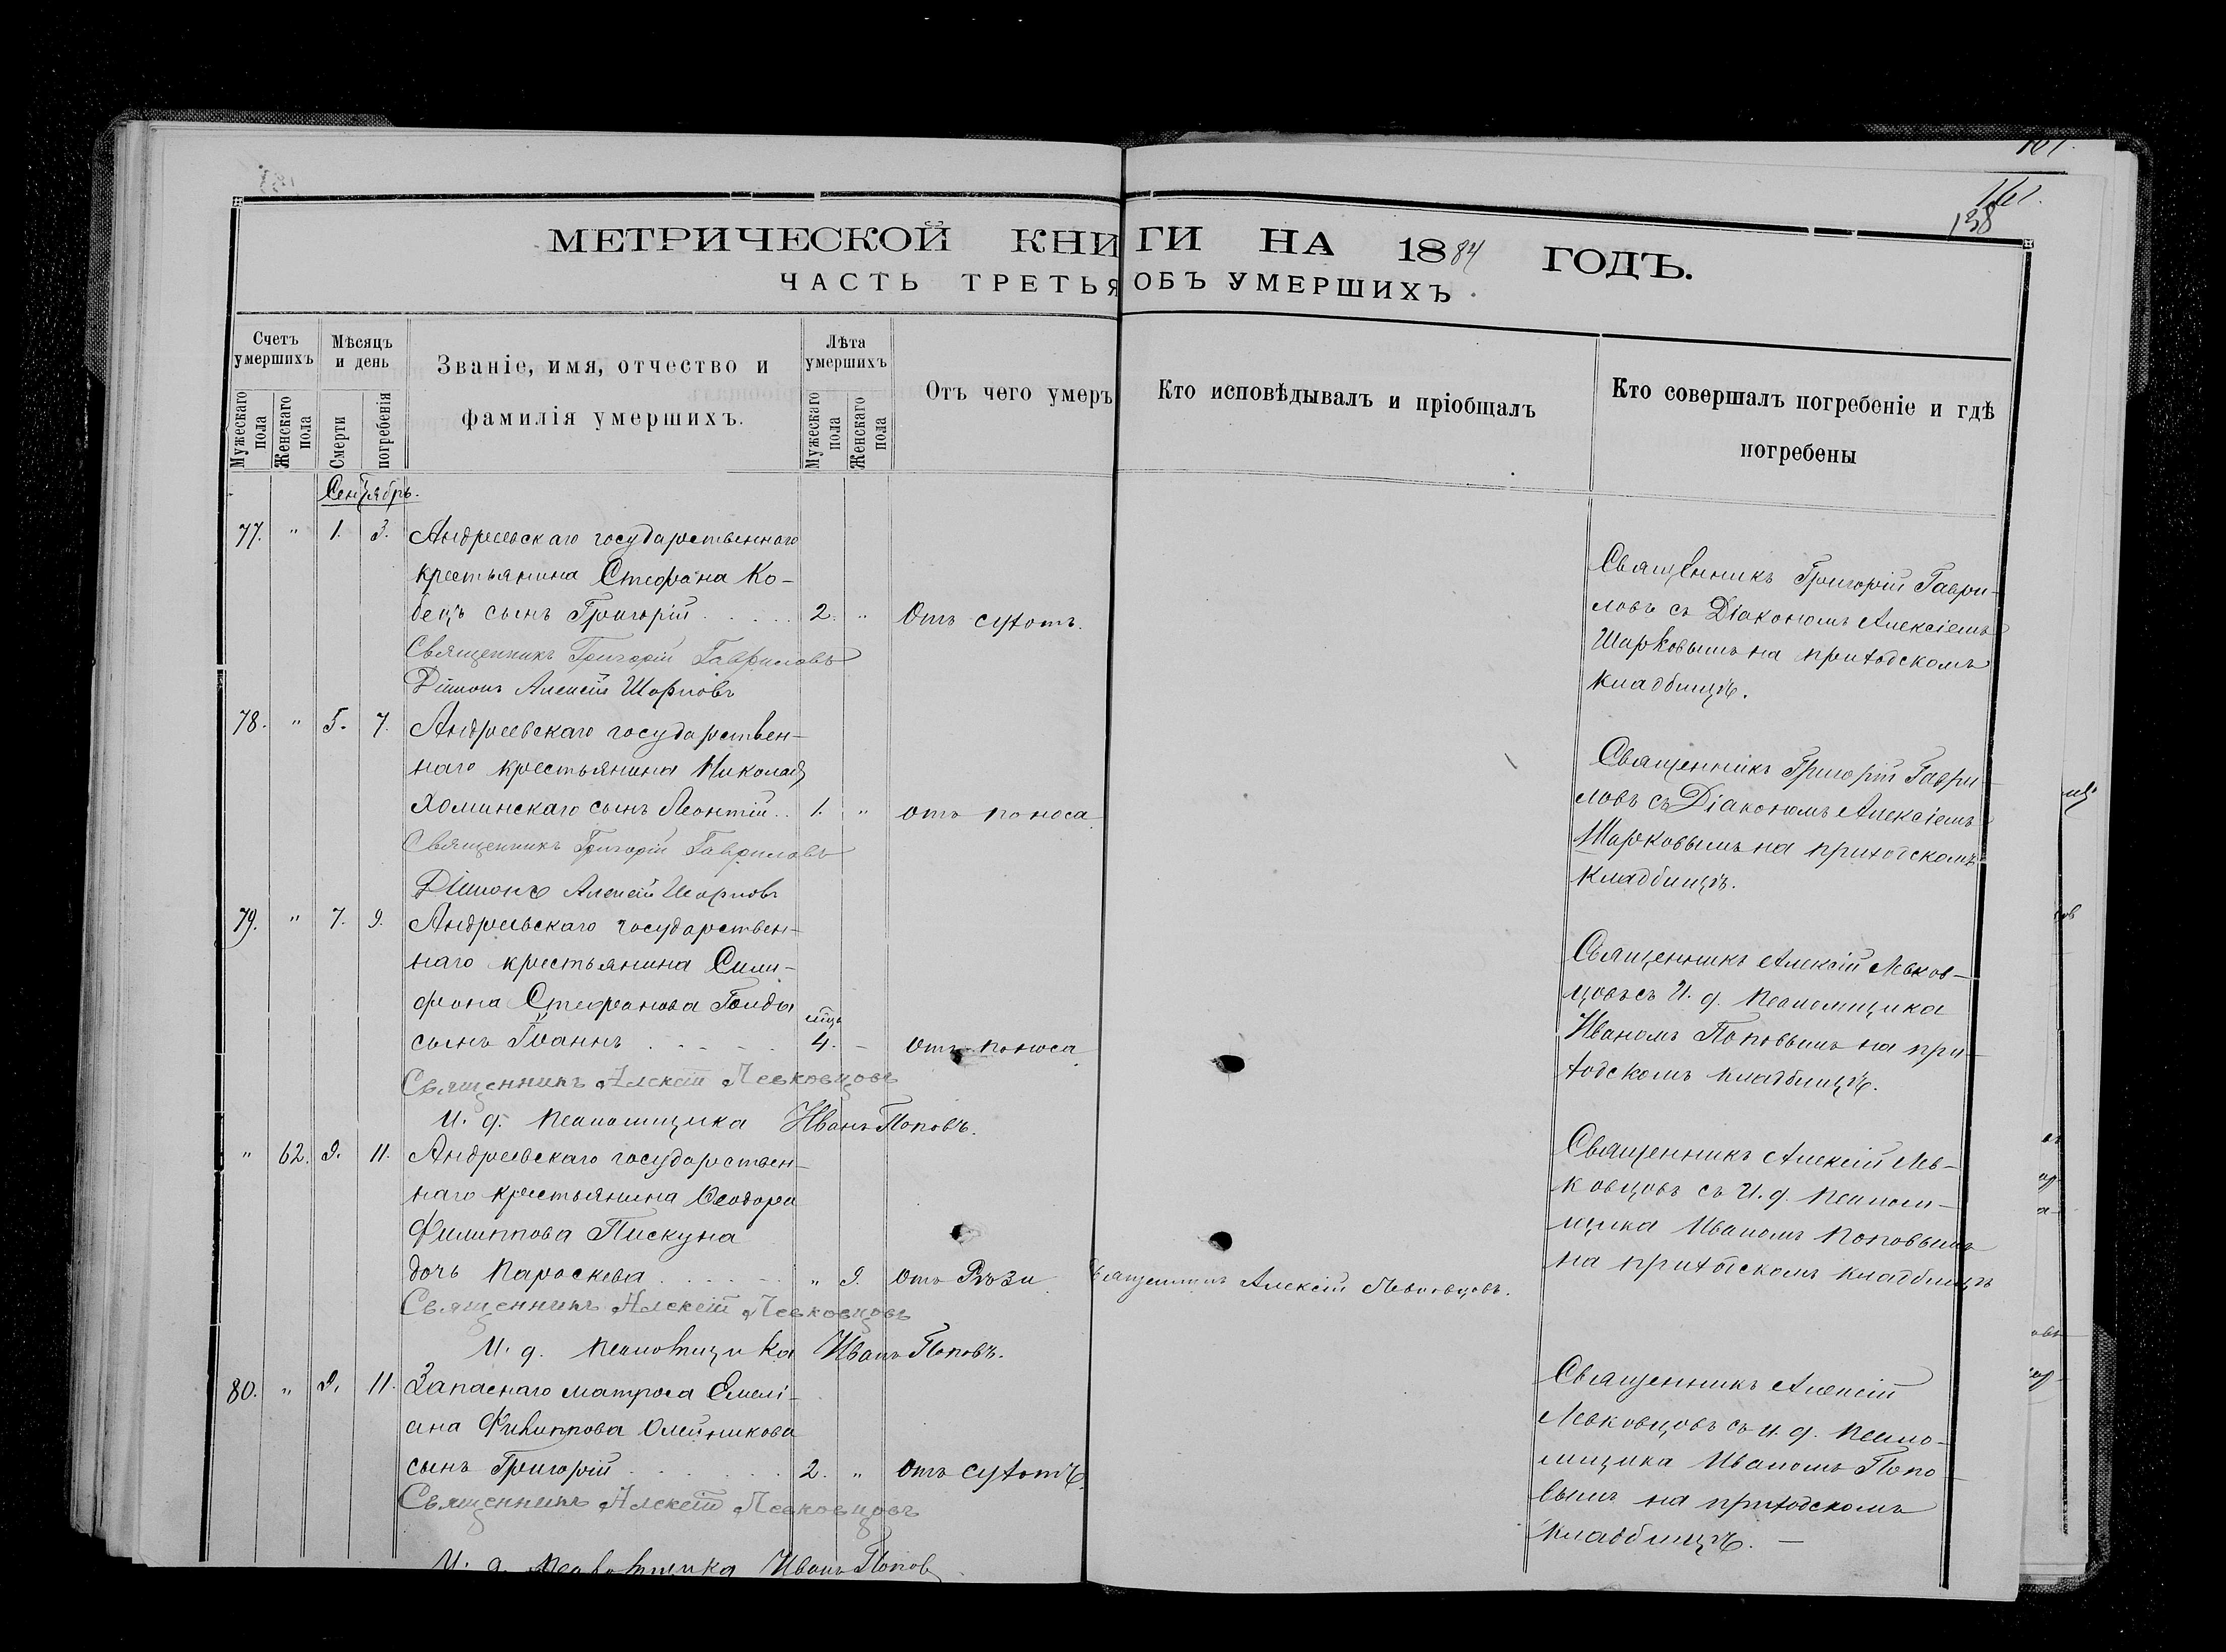 161.
138
МЕТРИЧЕСКОЙ КНИГИ НА 1884 ГОДЪ.
ЧАСТЬ ТРЕТЬЯ ОБЪ УМЕРШИХЪ.
Счетъ умершихъ
Мужескаго пола
Женскаго пола
Мѣсяцъ и день
Смерти
погребенія
Званіе, имя, отчество и
фамилія умершихъ.
Лѣта умершихъ
Мужескаго пола
Женскаго пола
Отъ чего умеръ
Кто исповѣдывалъ и пріобщалъ
Кто совершалъ погребеніе и гдѣ
погребены
Сентябрь.
77. " 1. 3. Андреевскаго государственнаго
крестьянина Стефана Ко-
бецъ сынъ Григорій . . . . . 2. " Отъ сухотъ.
Священникъ Григорій Гавриловъ
Діаконъ Алексій Шарковъ
Священникъ Григорій Гаври-
ловъ съ Діакономъ Алексіемъ
Шарковымъ на приходскомъ
кладбищѣ.
78. " 5. 7. Андреевскаго государствен-
наго крестьянина Николая
Хоминскаго сынъ Леонтій . . 1. " отъ поноса
Священникъ Григорій Гавриловъ
Діаконъ Алексій Шарковъ
Священникъ Григорій Гаври-
ловъ съ Діакономъ Алексіемъ
Шарковымъ на приходскомъ
кладбищѣ.
79. " 7. 9. Андреевскаго государствен-
наго крестьянина Сили-
фона Стефанова Гонды
сынъ Іоаннъ . . . . . мѣц. 4. - отъ поноса
Священникъ Алексій Левковцовъ
И. д. псаломщика Иванъ Поповъ.
Священникъ Алексій Левков-
цовъ съ И. д. псаломщика
Иваномъ Поповымъ на при-
ходскомъ кладбищѣ.
" 62. 9. 11. Андреевскаго государствен-
наго крестьянина Ѳеодора
Филиппова Пискуна
дочь Параскева . . . . . " 9. отъ Рѣзи Священникъ Алексій Левковцовъ.
Священникъ Алексій Левковцовъ
И. д. псаломщика Иванъ Поповъ.
Священникъ Алексій Лев-
ковцовъ съ И. д. псалом-
щика Иваномъ Поповымъ
на приходскомъ кладбищѣ
80. " 9. 11. Запаснаго матроса Емелі-
ана Филиппова Олейникова
сынъ Григорій . . . . . . 2. " отъ сухотъ.
Священникъ Алексій Левковцовъ
И. д. псаломщика Иванъ Поповъ
Священникъ Алексій
Левковцовъ съ и. д. псало-
мщика Иваномъ Попо-
вымъ на приходскомъ
кладбищѣ. —